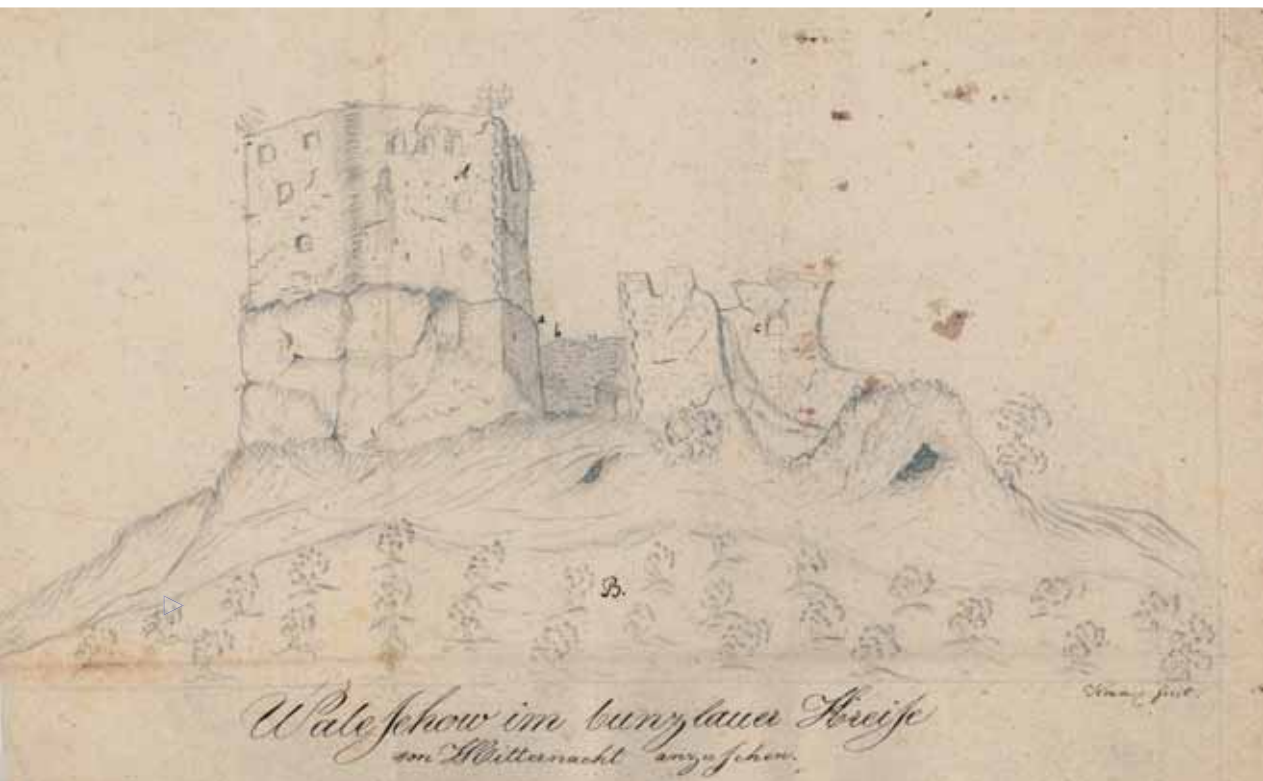 A
a b
c
B.
fecit.
Waleſchow im bunzlauer Kreiſe
von Mitternacht anzuſehen.